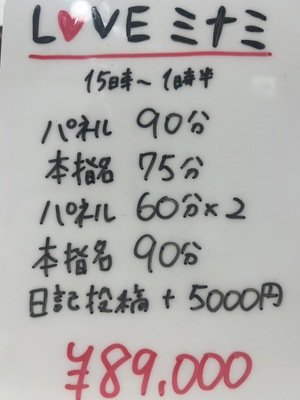 L♥VE ミナミ
15時〜1時半
パネル 90分
本指名 75分
パネル 60分×2
本指名 90分
日記投稿 + 5000円
¥89,000